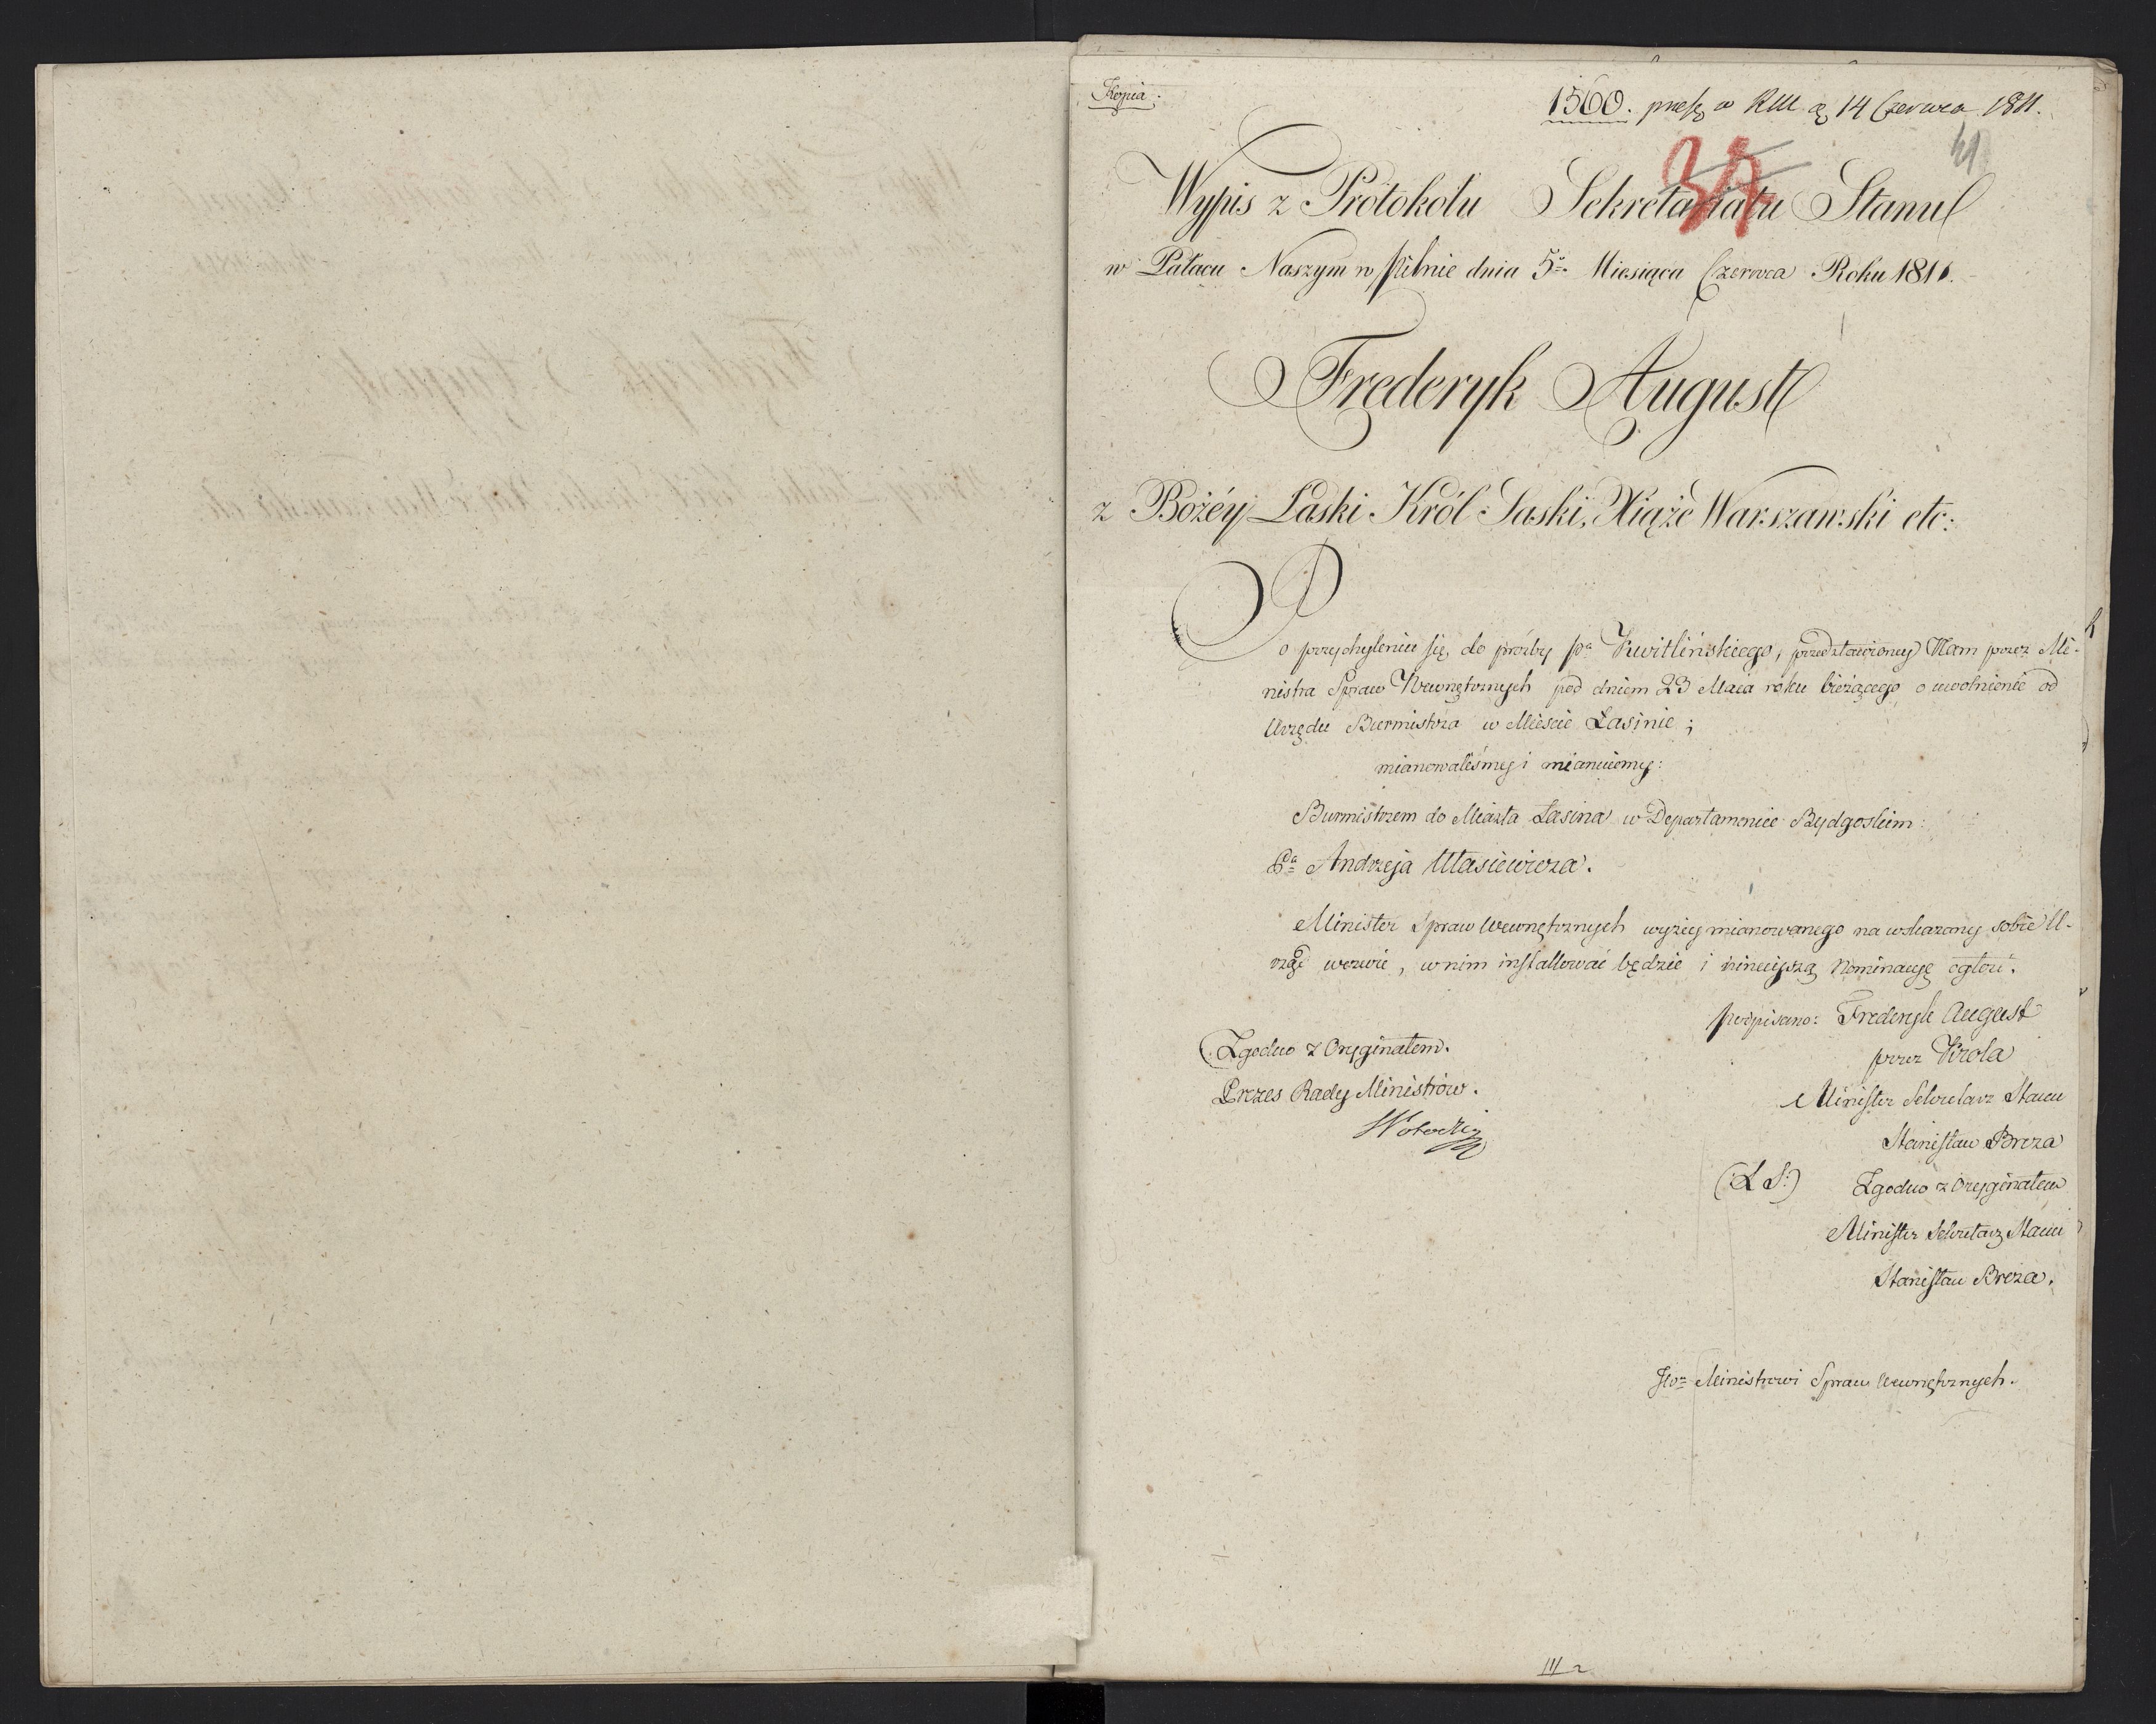 Kopia.
1560. pres. w RM d. 14 Czerwca 1811.
41
37
Wypis z Protokołu Sekretariatu Stanu
w Pałacu Naszym w Pilnie dnia 5º Miesiąca Czerwca Roku 1811.
Frederyk August
z Bożéy Łaski Król Saski, Xiąże Warszawski etc:
Po przychyleniu się do prośby Pa Kwitlińskiego, przedstawioney Nam przez Mi-
nistra Spraw Wewnętrznych pod dniem 23 Maia roku bieżącego o uwolnienie od
Urzędu Burmistrza w Mieście Łasinie;
mianowaliśmy i mianuiemy:
Burmistrzem do Miasta Łasina w Departamencie Bydgoskim:
Pa Andrzeja
Minister Spraw Wewnętrznych wyżey mianowanego na wskazany sobie U-
rząd wezwie, w nim installować będzie i ninieyszą Nominacyę ogłosi.
podpisano: Frederyk August
przez Króla
Minister Sekretarz Stanu
Stanisław Breza
(L.S.) Zgodno z Oryginałem
Minister Sekretarz Stanu
Stanisław Breza.
Zgodno z Oryginałem.
Prezes Rady Ministrów.
JWmu Ministrowi Spraw Wewnętrznych.